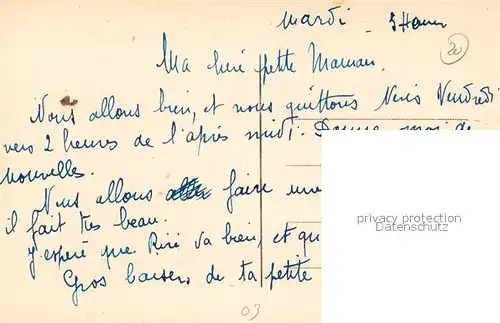 Mardi - 5 Heures
20
Ma chère petite Maman,
Nous allons bien, et nous quittons Néris Vendredi
vers 2 heures de l'après midi. Donne moi de
nouvelles.
Nous allons faire une
il fait très beau.
J'espère que Riri va bien, et qu
Gros baisers de ta petite
03
privacy protection
Datenschutz